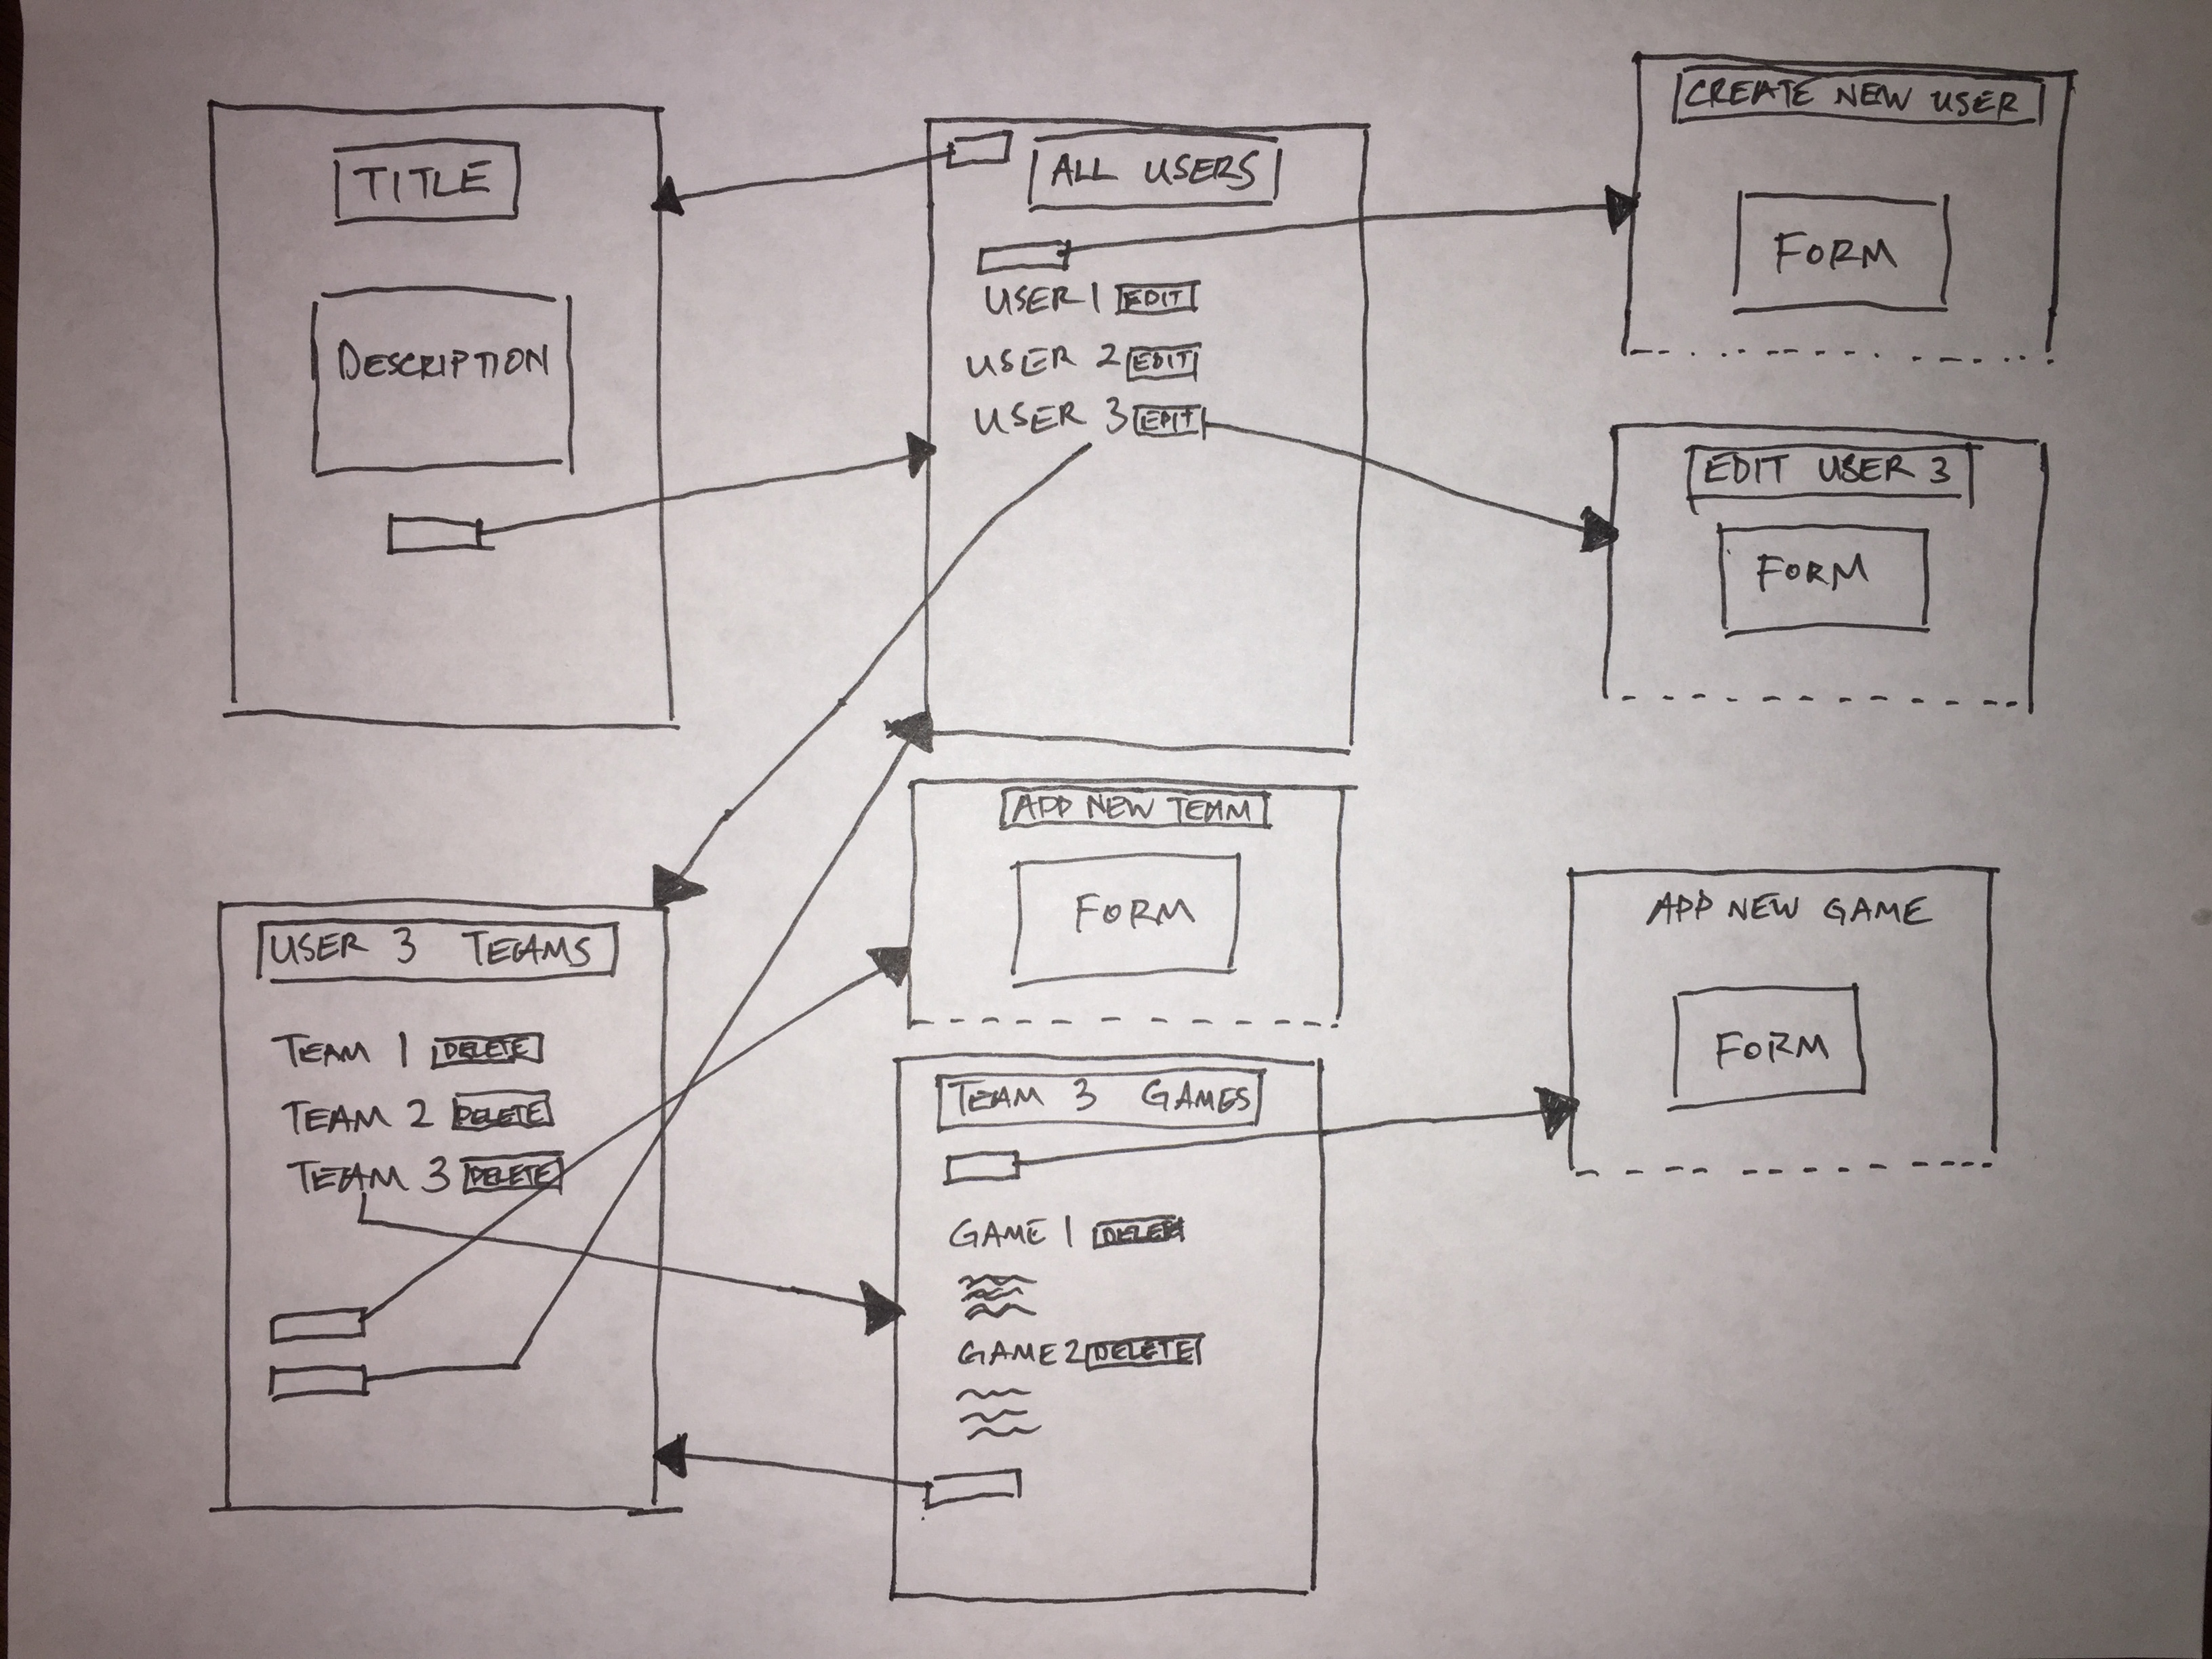 TITLE
DESCRIPTION
ALL USERS
USER 1 EDIT
USER 2 EDIT
USER 3 EDIT
CREATE NEW USER
FORM
EDIT USER 3
FORM
USER 3 TEAMS
TEAM 1 DELETE
TEAM 2 DELETE
TEAM 3 DELETE
ADD NEW TEAM
FORM
TEAM 3 GAMES
GAME 1 DELETE
GAME 2 DELETE
ADD NEW GAME
FORM